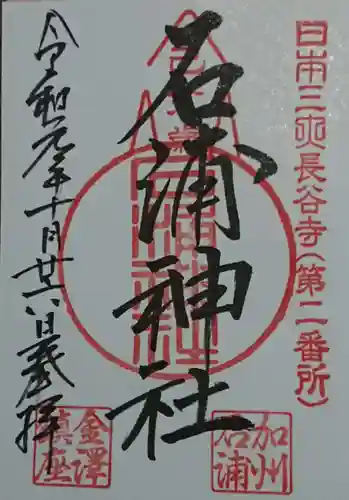 日本三長谷寺(第二番所)
石浦神社
令和元年十月廿八日奉拝
加州
石浦
金澤
鎮座